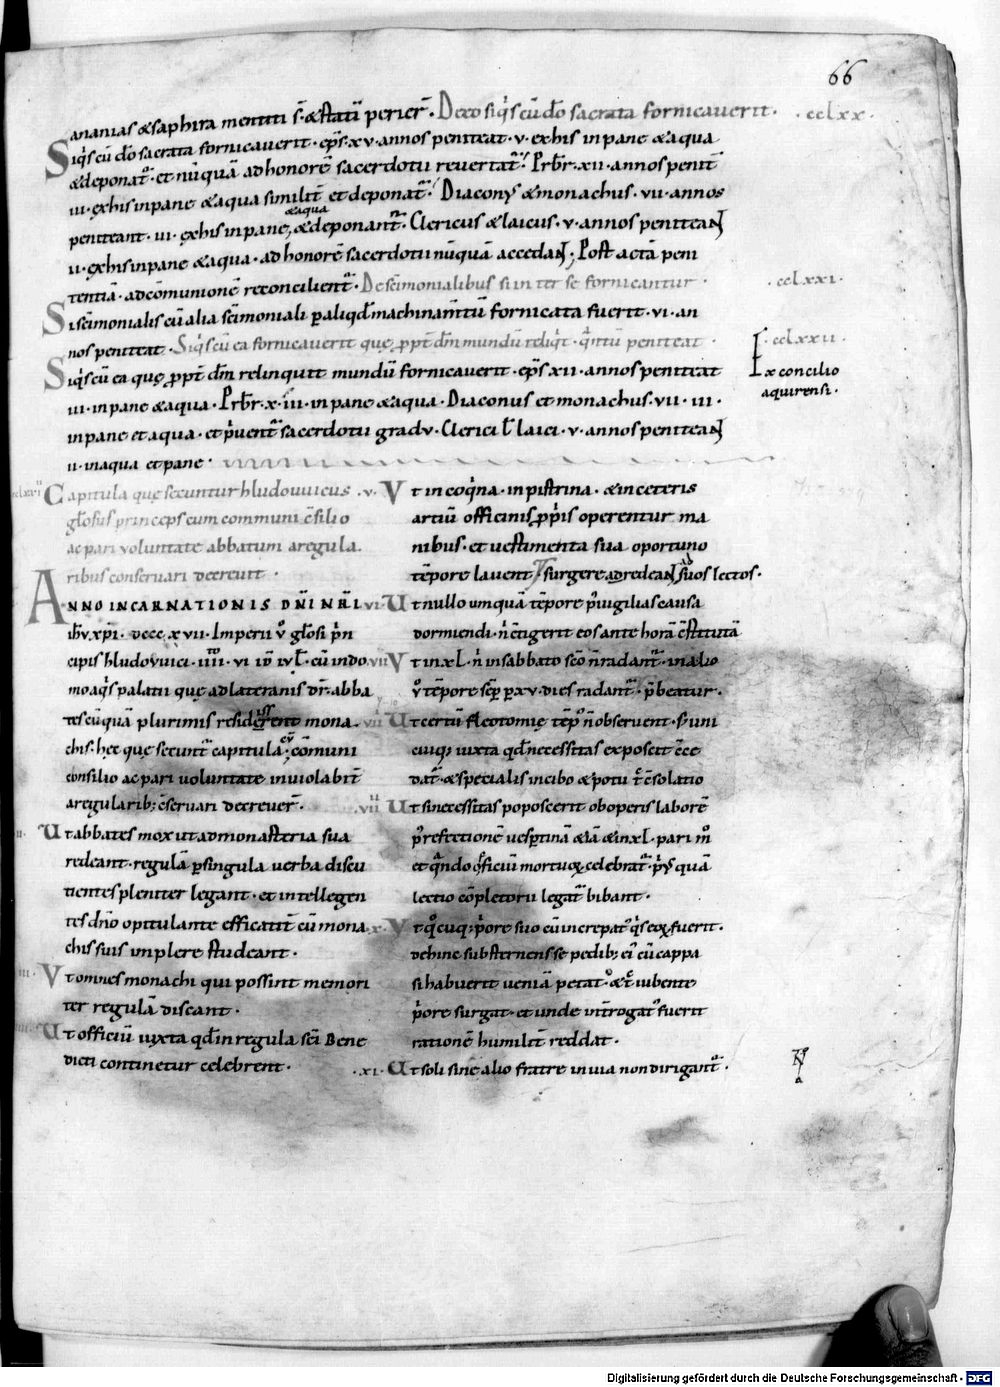 66
ananias & saphira mentiti s̄. & statī perier̄. De eo si q̇s cū dō sacrata fornicaverit. · cclxx ·
Siq̇s cū dō sacrata fornicaverit. ep̄s. xv. annos peniteat. v. ex his in pane & aqua
& deponat᷑. et nūquā ad honorē sacerdotii revertat᷑. Prb̄r. xii. annos penit̄
iii. ex his in pane & aqua similit̄ et deponat᷑. Diaconꝰ & monachus. vii. annos
& aqua
peniteant. iii. ex his in pane, & deponant᷑. Clericus & laicus. v. annos peniteant
ii. ex his in pane & aqua. ad honorē sacerdotii nūquā accedant; Post actā peni
tentiā. ad cōmunionē reconcilient᷑. De scīmonialibus si inter se fornicantur · · cclxxi ·
Si scīmonialis cū alia scīmoniali p aliqd̄ machinam̄tū fornicata fuerit. vi. an
nos peniteat. Siq̇s cū ea fornicaverit que ꝓpt̄ dm̄ mundū reliq̇t. q̇ntū peniteat · · cclxxii ·
Siq̇s cū ea que ꝓpt̄ dm̄ relinquit mundū fornicaverit. ep̄s xii. annos peniteat
Ex concilio
aquirensi.
iii. in pane & aqua. Prb̄r. x. iii. in pane & aqua. Diaconus et monachus. vii. iii.
in pane et aqua. et p̄uent᷑ sacerdotii gradu. Clerici ł laici. v. annos peniteant
ii. in aqua et pane.
Capitula que secuntur hludovvicus
gl̄osus princeps cum communi c̄silio
ac pari voluntate abbatum a regula
ribus conservari decreuit.
ANNO INCARNATIONIS DN̄I NR̄I
ih̄v xp̄i. dccc xvii. Imperii v̊ gl̄osi p̄n
cipis hludovvici. iiii. vi id̄ ivl̄. cū in do
mo aq̇s palatii que ad lateranis dr̄. abba
tes cū quā plurimis residerent mona
chis. hec que secunt᷑ capitula, cōmuni
consilio ac pari voluntate inviolabit̄
a regularib; c̄servari decrever̄.
ii. Ut abbates mox ut ad monasteria sua
redeant. regulā p singula verba discu
tientes pleniter legant. et intellegen
tes dn̄o opitulante efficacit̄ cū mona
chis suis implere studeant.
iii. Vt omnes monachi qui possunt memori
ter regulā discant.
iiii. Ut officiū iuxta qd̄ in regula sc̄i Bene
dicti continetur celebrent.
.v. Vt in coq̇na. in pistrina. & in ceteris
artiū officinis ꝓṗis operentur ma
nibus. et vestimenta sua oportuno
tēpore lavent surgere ad redeant suos lectos.
vi. Ut nullo umquā tēpore p᷒ vigilias causa
dormiendi. n̄ c̄tigerit eos ante horā c̄stitutā
vii Vt in xl. n̄ in sabbato sc̄o n̄ radant᷑. in alio
v̊ tēpore sēp p xv. dies radant᷑. p̄beatur.
viii Ut certū fleotomie tēp᷒ n̄ observent. s; uni
cuiq; iuxta qd̄ necessitas exposcit c̄ce
dat᷑. & specialis in cibo & potu t̄c c̄solatio
viiii Ut si necessitas poposcerit ob operis laborē
p᷒ refectionē vesptinā & iā & in xl. pari m̊
et q̄ndo officiū mortuoꝝ celebrat᷑. p᷒usquā
lectio cōpletorii legat᷑ bibant.
.x. Vt q̊cuq; p̄ore suo cū increpat᷒ q̇s eoꝝ fuerit.
dehinc substernens se pedib; ei᷒ cū cappa
si habuerit veniā petat. & t̄c iubente
p̄ore surgat. et unde int̄rogat᷒ fuerit
rationē humilit̄ reddat.
.xi. Ut soli sine alio fratre in via non dirigant᷑.
Digitalisierung gefördert durch die Deutsche Forschungsgemeinschaft · DFG